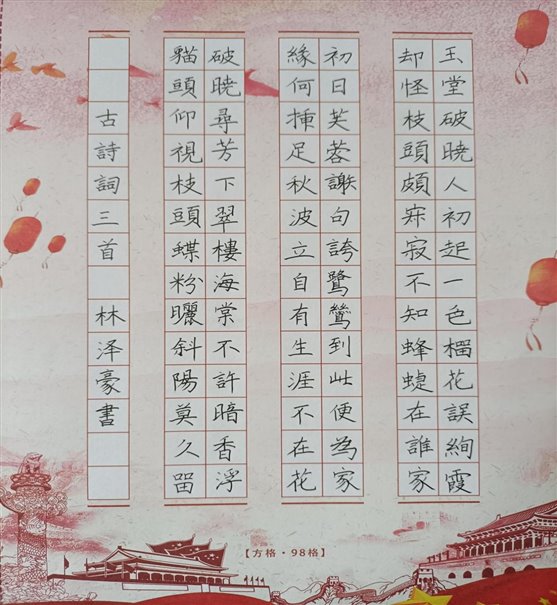 玉堂破曉人初起一色榴花誤絢霞
却怪枝頭頗寂寂不知蜂蝶在誰家
初日芙蓉謝句誇鷺鷥到此便為家
緣何插足秋波立自有生涯不在花
破曉尋芳下翠樓海棠不許暗香浮
貓頭仰視枝頭蝶粉曬斜陽莫久留
古詩詞三首 林泽豪書
【方格·98格】